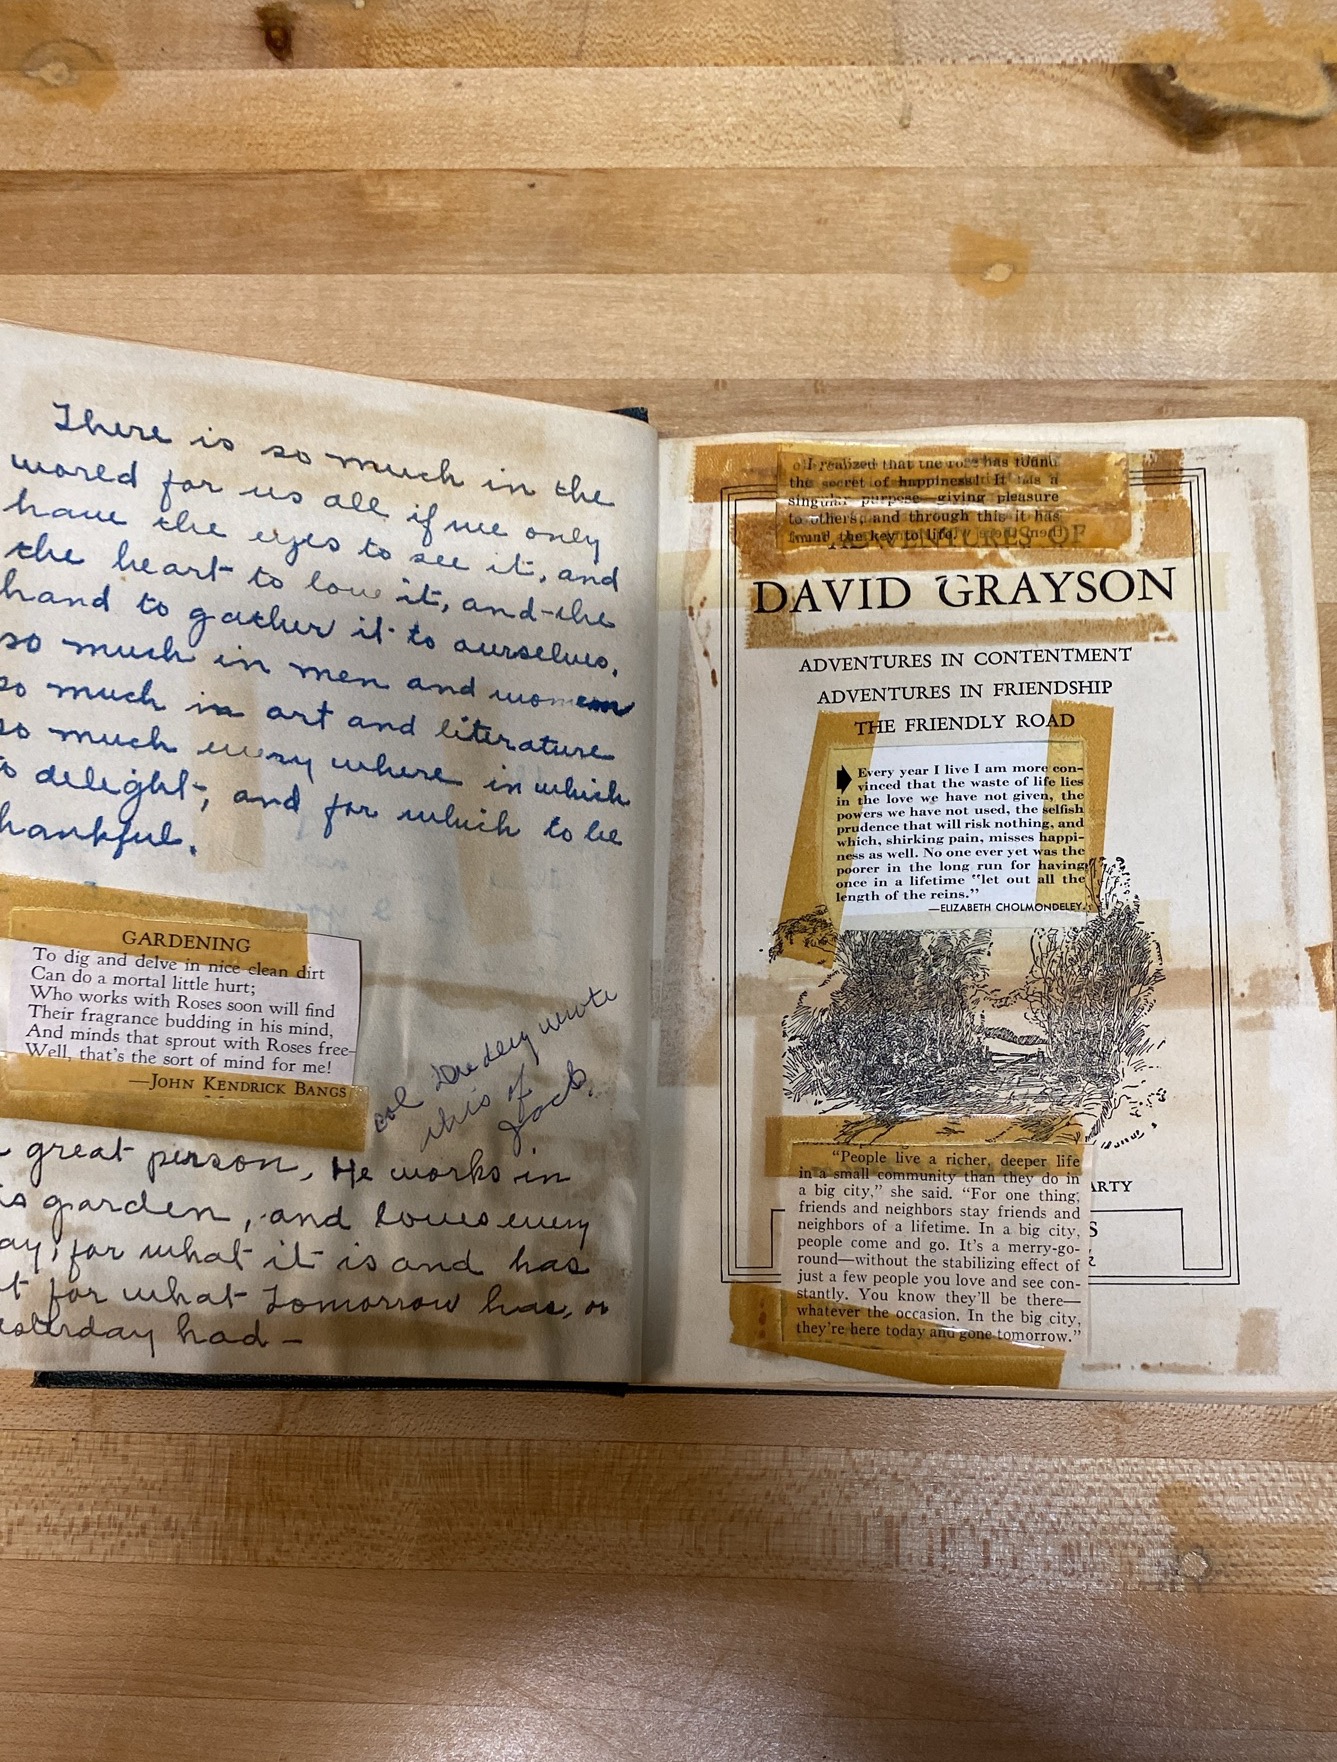 There is so much in the
world for us all if we only
have the eyes to see it, and
the heart to love it, and the
hand to gather it to ourselves,
so much in men and women
so much in art and literature
so much every where in which
to delight, and for which to be
hankful.
GARDENING
To dig and delve in nice clean dirt
Can do a mortal little hurt;
Who works with Roses soon will find
Their fragrance budding in his mind,
And minds that sprout with Roses free—
Well, that's the sort of mind for me!
—JOHN KENDRICK BANGS
wrote
this of
Jack.
great person, He works in
is garden, and loves every
ay, for what it is and has
t for what Tomorrow has, or
esterday had—
I realized that the rose has found
the secret of happiness! It has a
singular purpose—giving pleasure
to others, and through this it has
found the key to life.
ADVENTURES OF
DAVID GRAYSON
ADVENTURES IN CONTENTMENT
ADVENTURES IN FRIENDSHIP
THE FRIENDLY ROAD
Every year I live I am more con-
vinced that the waste of life lies
in the love we have not given, the
powers we have not used, the selfish
prudence that will risk nothing, and
which, shirking pain, misses happi-
ness as well. No one ever yet was the
poorer in the long run for having
once in a lifetime "let out all the
length of the reins."
—ELIZABETH CHOLMONDELEY
"People live a richer, deeper life
in a small community than they do in
a big city," she said. "For one thing,
friends and neighbors stay friends and
neighbors of a lifetime. In a big city,
people come and go. It's a merry-go-
round—without the stabilizing effect of
just a few people you love and see con-
stantly. You know they'll be there—
whatever the occasion. In the big city,
they're here today and gone tomorrow."
ARTY
S